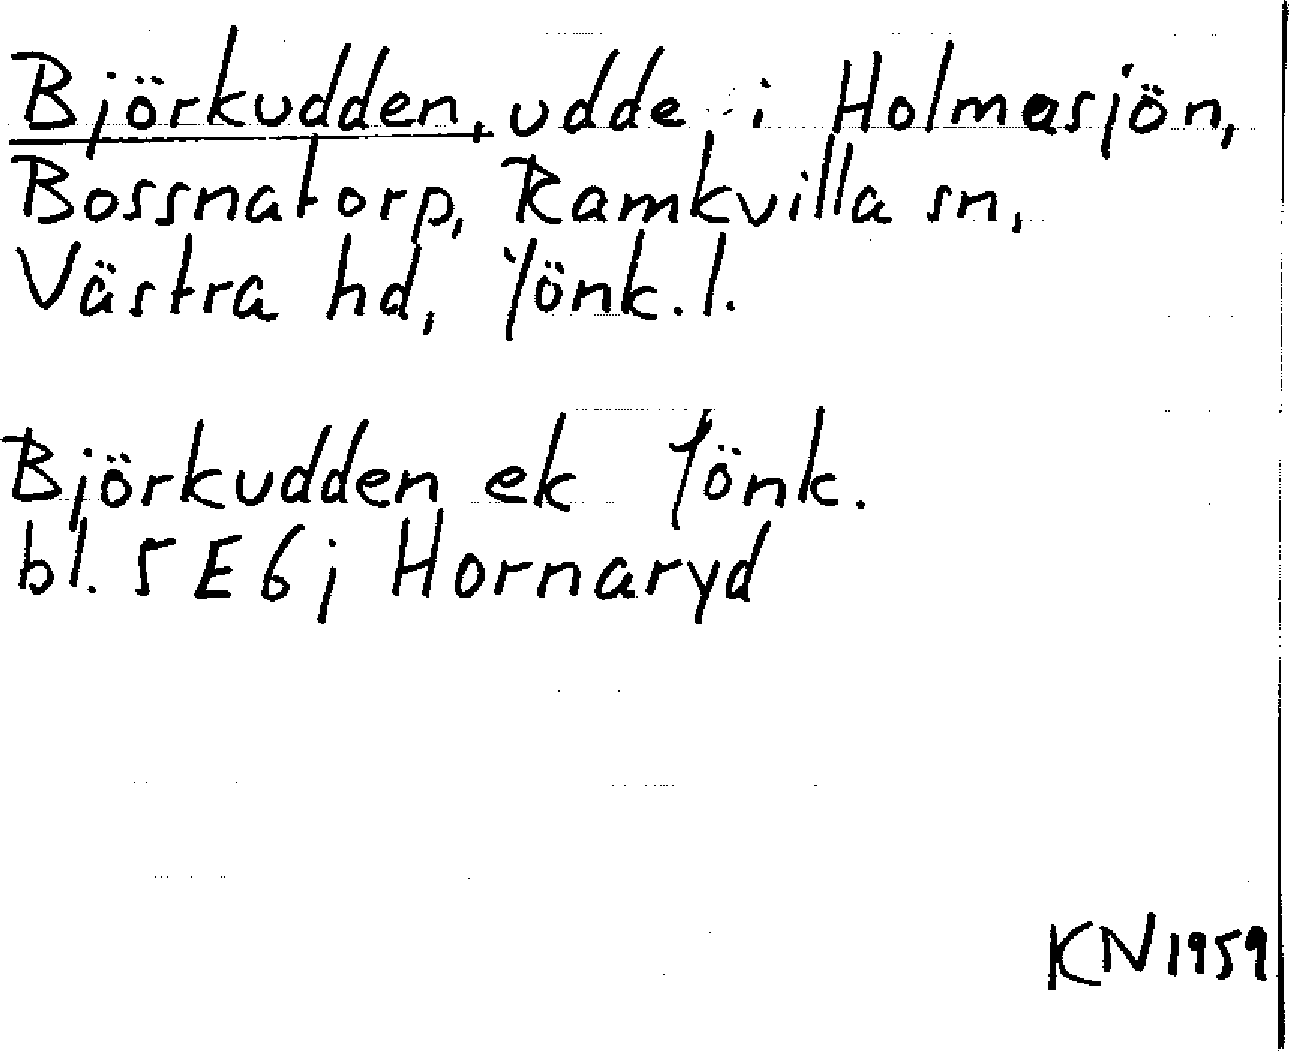 Björkudden, udde i Holmasjön,
Bossnatorp, Ramkvilla sn,
Västra hd, Jönk. l.
Björkudden ek Jönk.
bl. 5 E 6 j Hornaryd
KN 1959